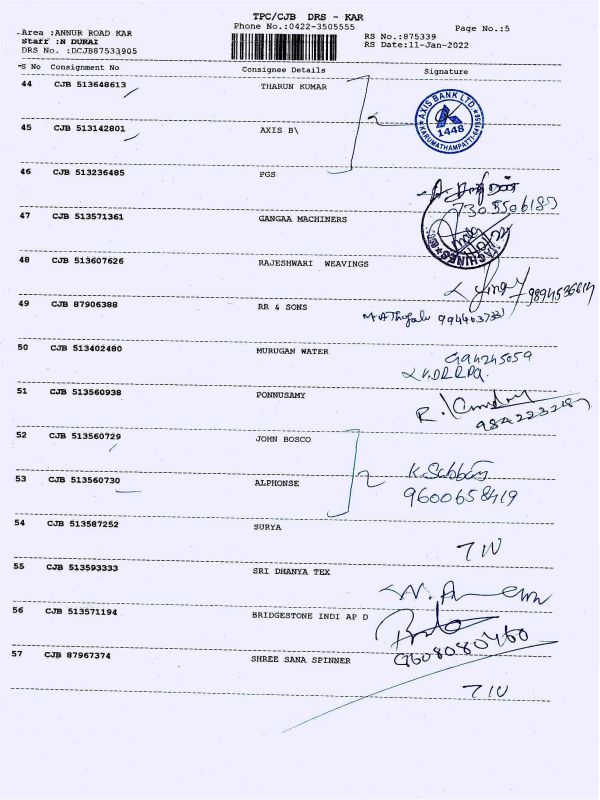 TPC/CJB DRS - KAR
Area :ANNUR ROAD KAR
Phone No.:0422-3505555
Page No.:5
Staff :N DURAI
RS No.:875339
DRS No. :DCJB87533905
RS Date:11-Jan-2022
S No Consignment No Consignee Details Signature
44 CJB 513648613 THARUN KUMAR
AXIS BANK LTD.
1448
KARUMATHAMPATTI-641659
45 CJB 513142801 AXIS B\
46 CJB 513236485 PGS
47 CJB 513571361 GANGAA MACHINERS
48 CJB 513607626 RAJESHWARI WEAVINGS
49 CJB 87906388 RR & SONS
9944637331
50 CJB 513402480 MURUGAN WATER
51 CJB 513560938 PONNUSAMY
52 CJB 513560729 JOHN BOSCO
53 CJB 513560730 ALPHONSE
9600658419
54 CJB 513587252 SURYA
55 CJB 513593333 SRI DHANYA TEX
56 CJB 513571194 BRIDGESTONE INDI AP D
9608080460
57 CJB 87967374 SHREE SANA SPINNER